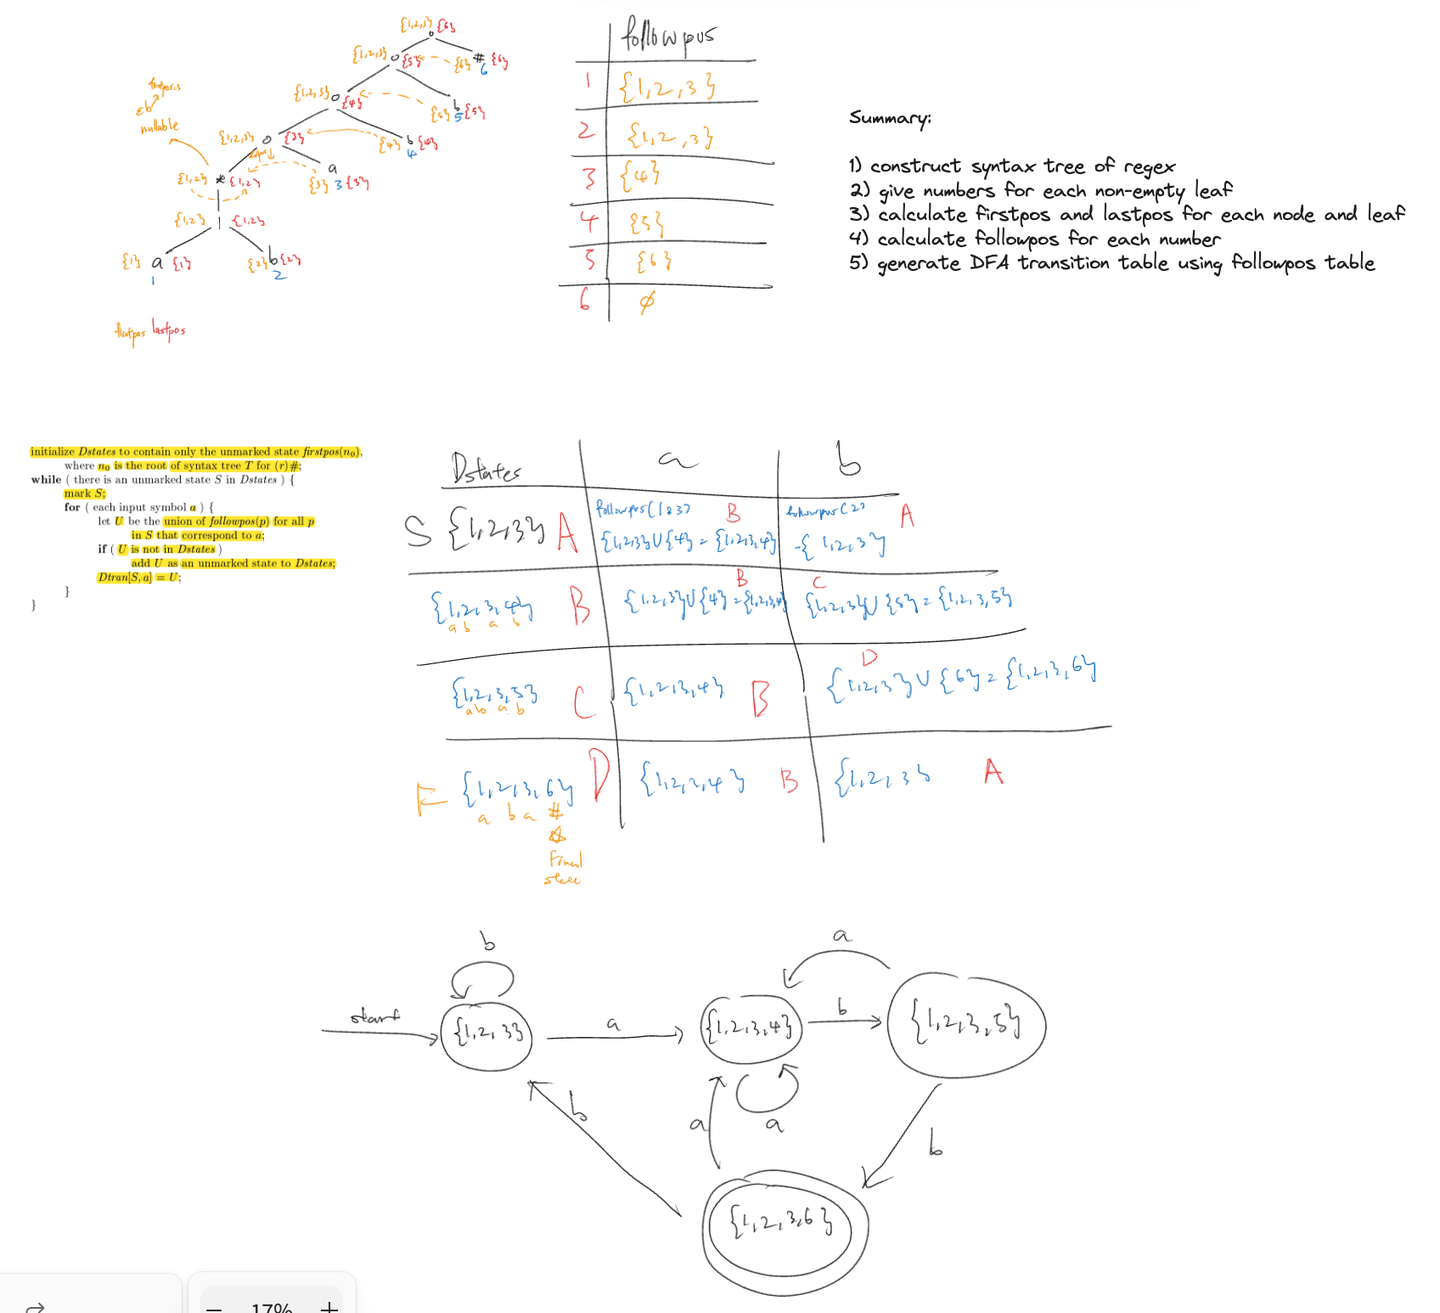 {1,2,3} {6}
{1,2,3} {5} {6} # {6}
6
{1,2,3} {4} {5} b {5}
5
{1,2,3} {3} {4} b {4}
4
εb
nullable
{1,2} * {1,2} a
{3} 3 {3}
{1,2} | {1,2}
{1} a {1} {2} b {2}
1 2
firstpos lastpos
followpos
1 {1,2,3}
2 {1,2,3}
3 {4}
4 {5}
5 {6}
6 ∅
Summary:
1) construct syntax tree of regex
2) give numbers for each non-empty leaf
3) calculate firstpos and lastpos for each node and leaf
4) calculate followpos for each number
5) generate DFA transition table using followpos table
initialize Dstates to contain only the unmarked state firstpos(n₀),
where n₀ is the root of syntax tree T for (r)#;
while ( there is an unmarked state S in Dstates ) {
mark S;
for ( each input symbol a ) {
let U be the union of followpos(p) for all p
in S that correspond to a;
if ( U is not in Dstates )
add U as an unmarked state to Dstates;
Dtran[S, a] = U;
}
}
Dstates a b
followpos(1∪3) B followpos(2) A
S {1,2,3} A {1,2,3}∪{4} = {1,2,3,4} ={1,2,3}
B C
{1,2,3,4} B {1,2,3}∪{4} = {1,2,3,4} {1,2,3}∪{5} = {1,2,3,5}
a b a b
D
{1,2,3,5} C {1,2,3,4} B {1,2,3}∪{6} = {1,2,3,6}
a b a b
F {1,2,3,6} D {1,2,3,4} B {1,2,3} A
a b a #
Final
state
b a
start {1,2,3} a {1,2,3,4} b {1,2,3,5}
b a a b
{1,2,3,6}
17%